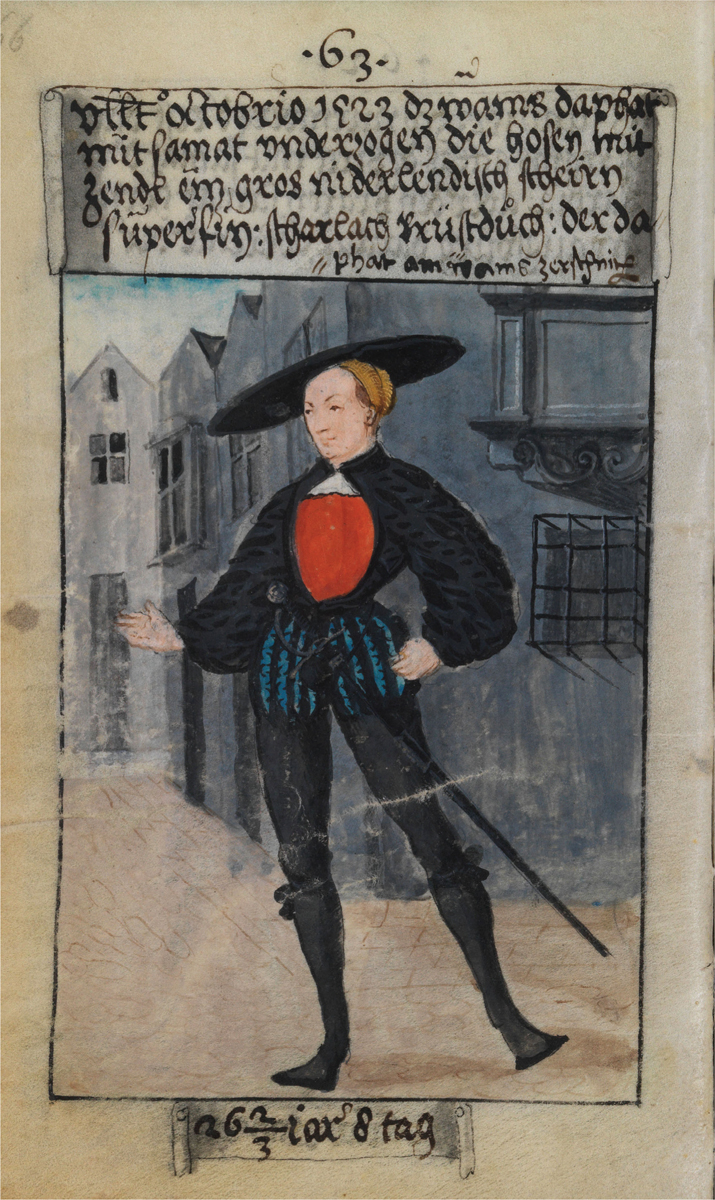 ·63·
ullt° octobrio 1523 dz wams daphat
mit samat underzogen die hosen mit
zendl ein gros niderlendisch scheirn
superfin: scharlach brüstdůch: der da
phat am wams zerschnit
26 2/3 iar 8 tag